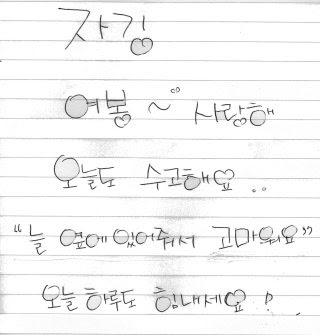 자깅
여봉 ~ 사랑해
오늘도 수고해요 ..
“늘 옆에 있어줘서 고마워요”
오늘 하루도 힘내세요 !